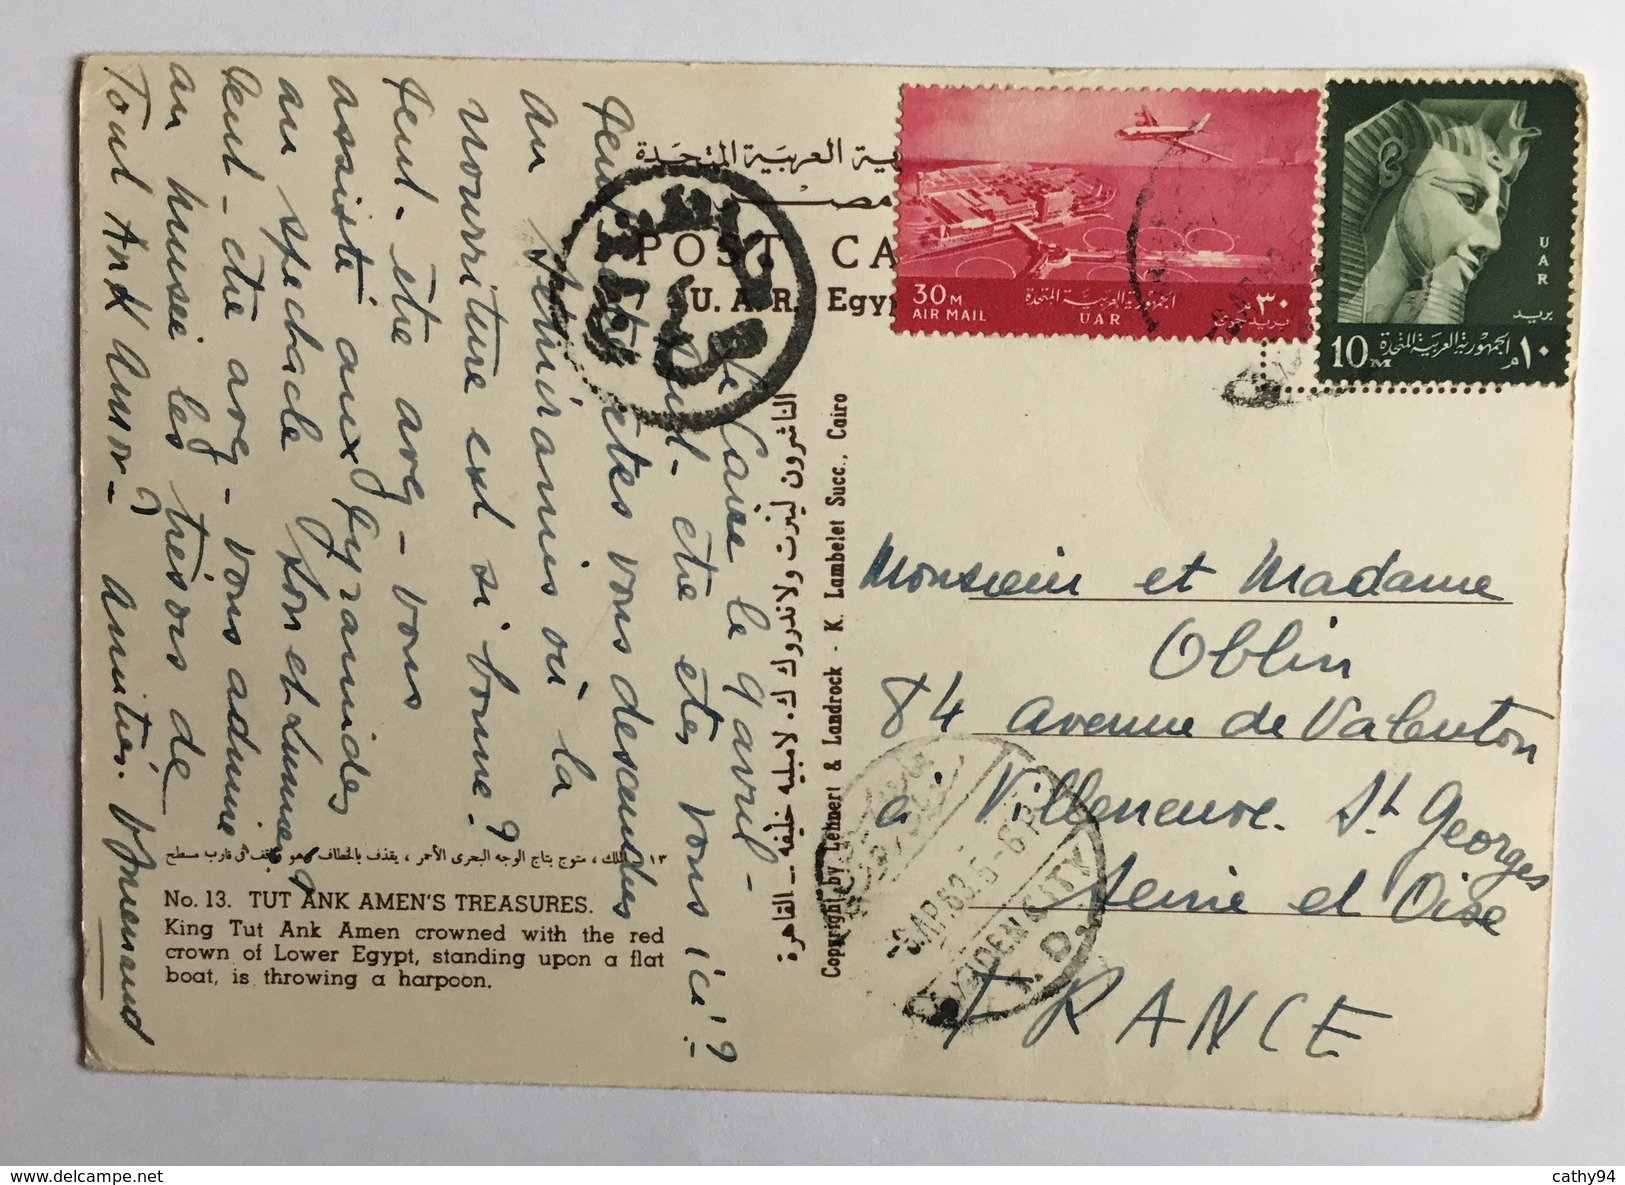 الجمهورية العربية المتحدة
مصر
POST CA
U. A. R. Egyp
30 M
AIR MAIL
الجمهورية العربية المتحدة
UAR
٣٠
بريد جوى
UAR
بريد
10 M
الجمهورية العربية المتحدة
١٠ م
Le Caire le 9 avril -
Peut-être êtes vous ici!?
Peut-être êtes vous descendus
au Sémiramis où la
nourriture est si bonne?
Peut-être avez-vous
assisté aux Pyramides
au spectacle Son et Lumière?
Peut-être avez-vous admiré
au musée les trésors de
Tout Ank Amon-? Amitiés.
الناشرون لينرت ولاندروك ك. لامبليه خليفة - القاهرة
Copyright by Lehnert & Landrock - K. Lambelet Succ., Cairo
Monsieur et Madame
Oblin
84 avenue de Valenton
à Villeneuve. St Georges
Seine et Oise
FRANCE
GARDEN CITY
T. D.
١٣ الملك ، متوج بتاج الوجه البحرى الأحمر ، يقذف بالخطاف وهو واقف فى قارب مسطح
No. 13. TUT ANK AMEN'S TREASURES.
King Tut Ank Amen crowned with the red
crown of Lower Egypt, standing upon a flat
boat, is throwing a harpoon.
cathy94